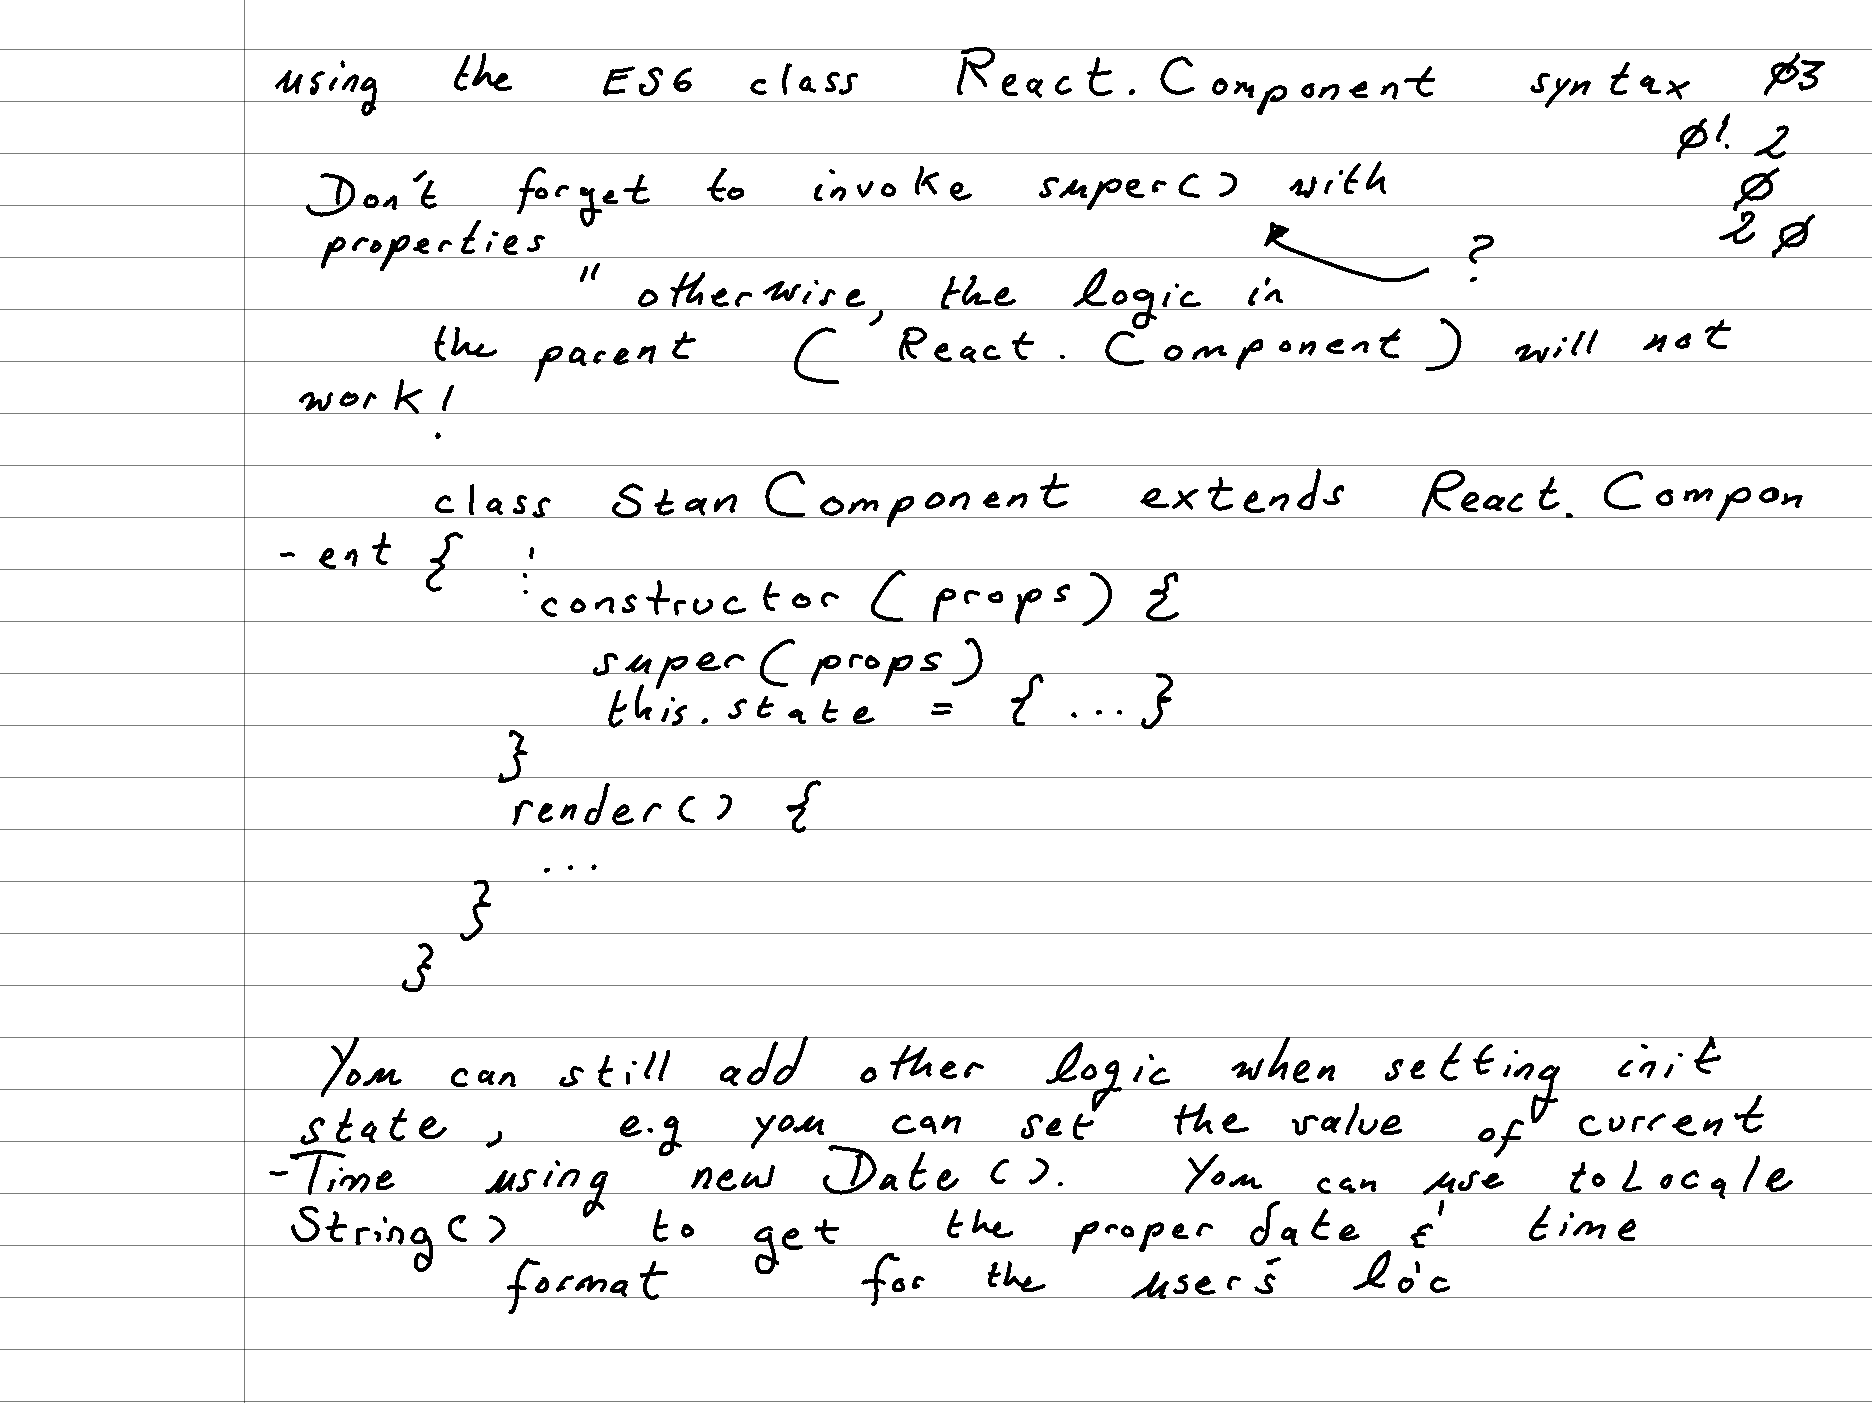 using the ES6 class React.Component syntax Ø3
Ø! 2
Don't forget to invoke super() with Ø
properties 2 Ø
?
" otherwise, the logic in
the parent ( React. Component) will not
work!
class Stan Component extends React. Compon
- ent {
constructor ( props ) {
super( props )
this.state = { ... }
}
render() {
...
}
}
You can still add other logic when setting init
state, e.g you can set the value of current
-Time using new Date(). You can use toLocale
String() to get the proper date & time
format for the user's loc